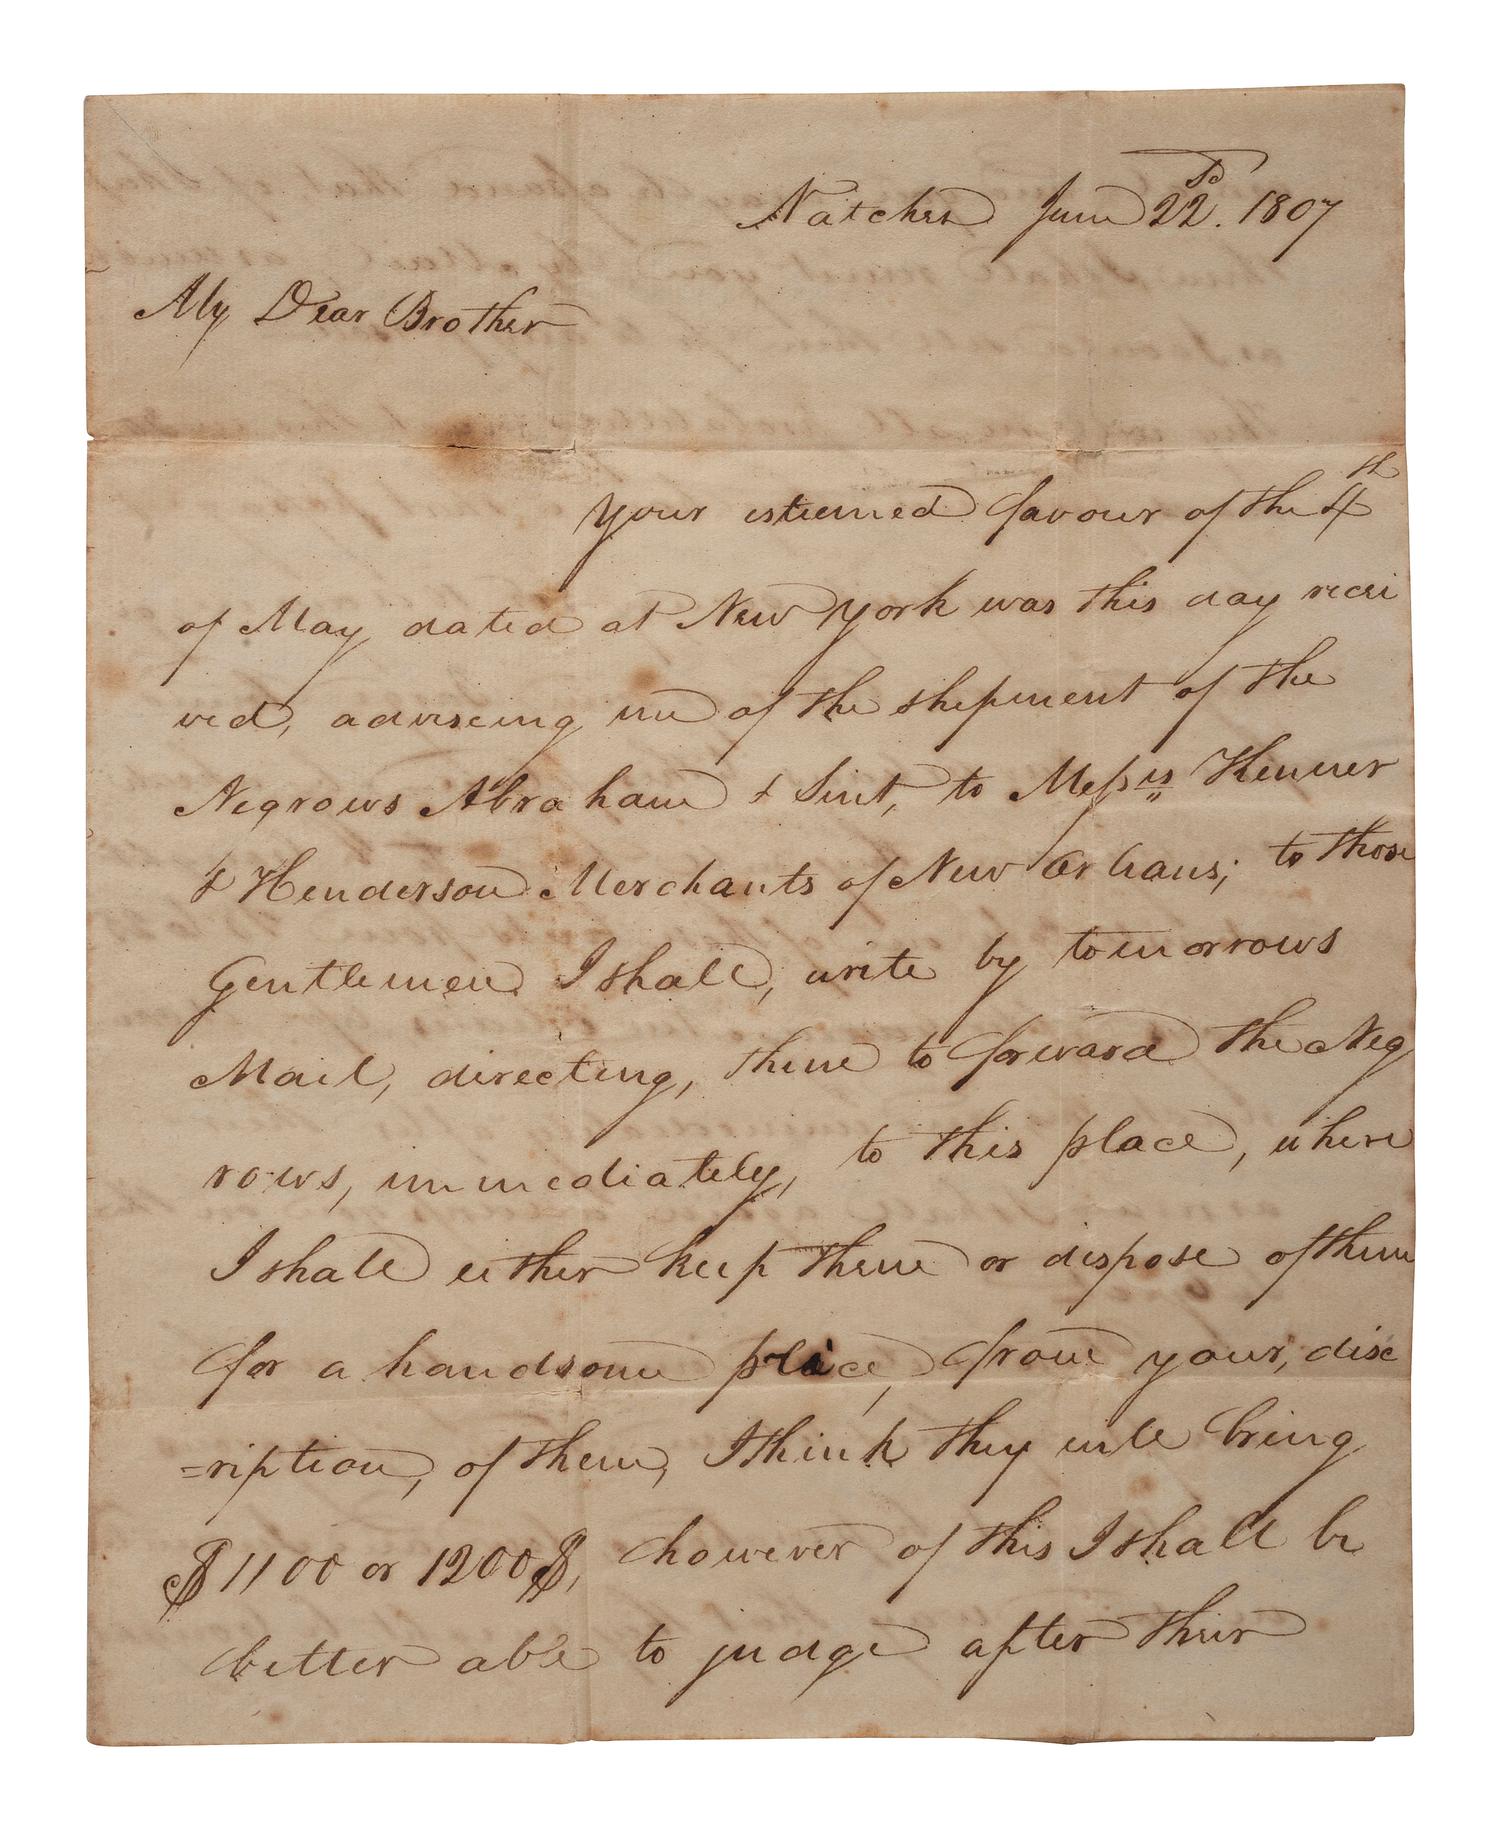 Natches June 22d. 1807
My Dear Brother
Your esteemed favour of the 4th
of May dated at New York was this day recei
ved, adviseing me of the shipment of the
Negrows Abraham & Sint, to Messrs Kenner
& Henderson Merchants of New Orleans; to those
Gentlemen I shall, write by tomorrows
Mail, directing, theme to forward the Neg
rows, immediately, to this place, where
I shall either keep theme or dispose of them
for a handsome price, from your, disc
=ription, of them, I think they will bring
$1100 or 1200$, however of this I shall be
better able to judge after their